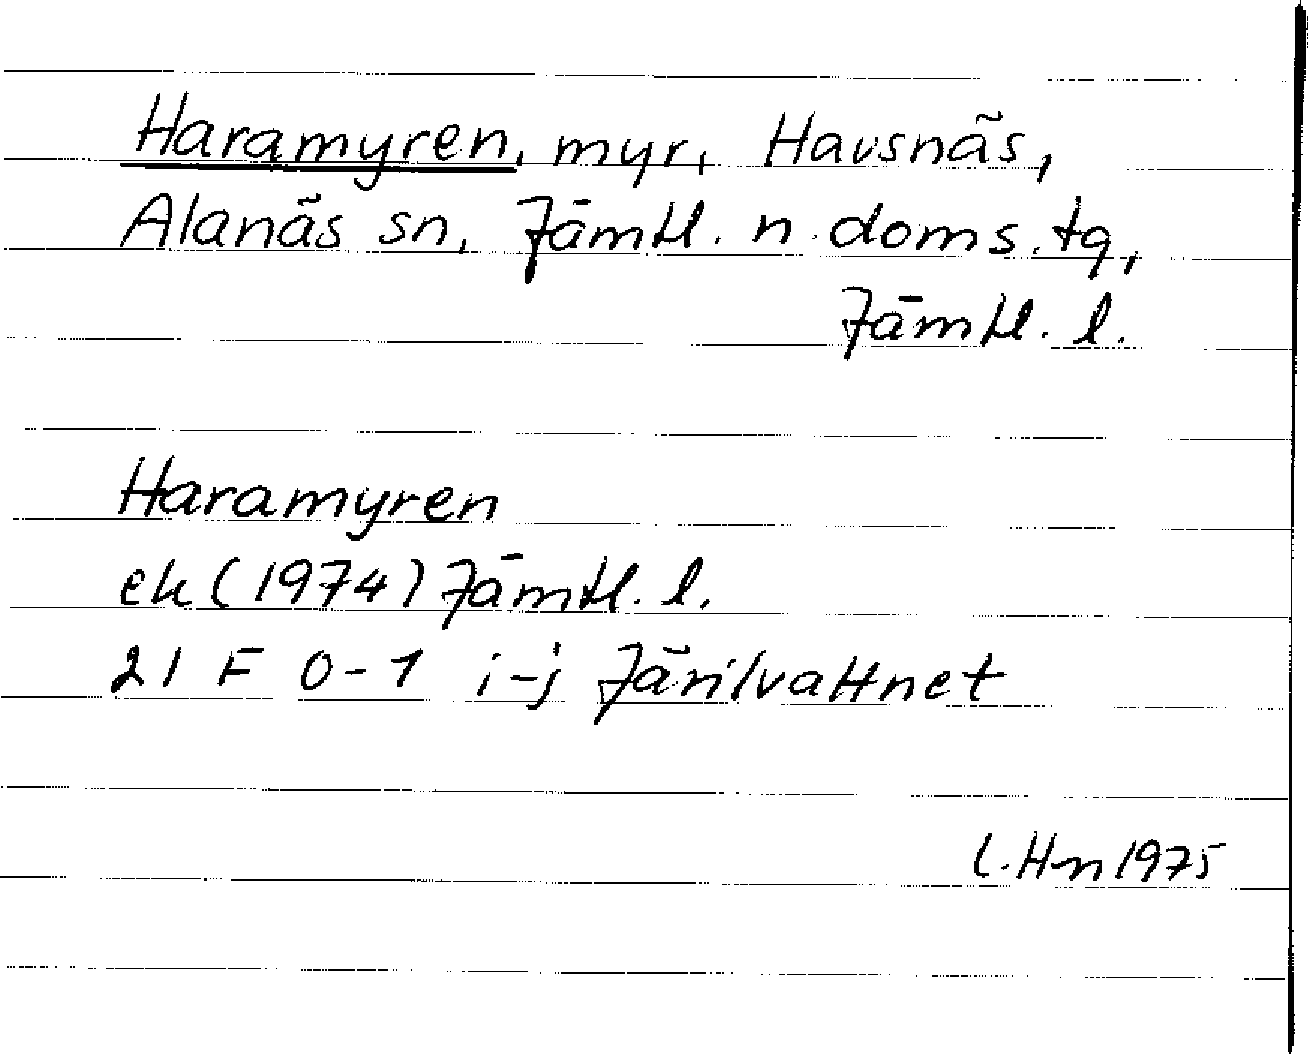 Haramyren, myr, Havsnäs,
Alanäs sn, Jämtl. n. doms. tg,
Jämtl. l.
Haramyren
ek (1974) Jämtl. l.
21 F 0-1 i-j Järilvattnet
L. Hn 1975